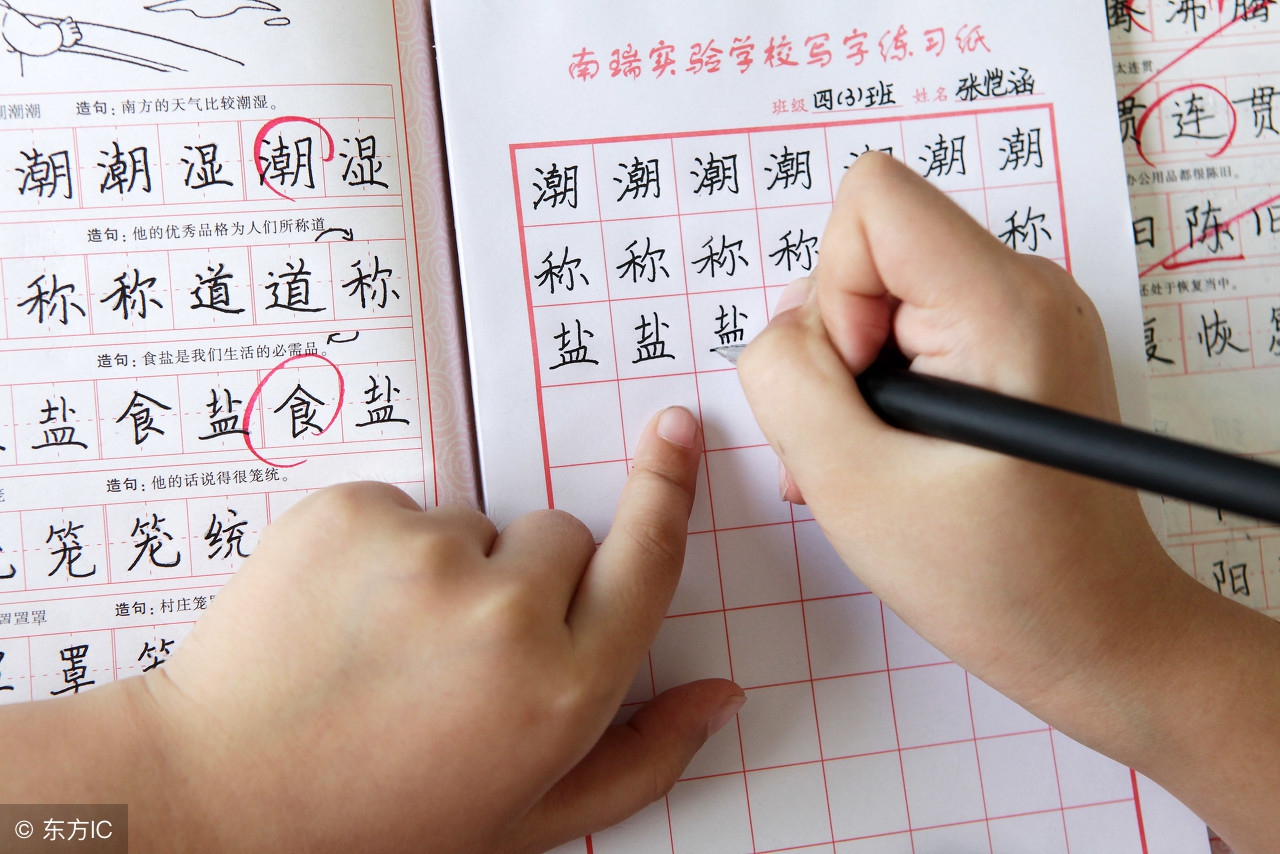 潮潮 造句：南方的天气比较潮湿。
潮 潮 湿 潮 湿
造句：他的优秀品格为人们所称道
称 称 道 道 称
造句：食盐是我们生活的必需品。
盐 食 盐 食 盐
造句：他的话说得很笼统。
笼 笼 统
罩罩罩 造句：村庄笼
罩
南瑞实验学校写字练习纸
班级 四(3)班 姓名 张恺涵
潮 潮 潮 潮 潮 潮
称 称 称 称 称
盐 盐 盐
沸 腾
太连贯
贯 连 贯
办公用品都很陈旧。
旧 陈 旧
还处于恢复当中。
复 恢
阳
© 东方IC